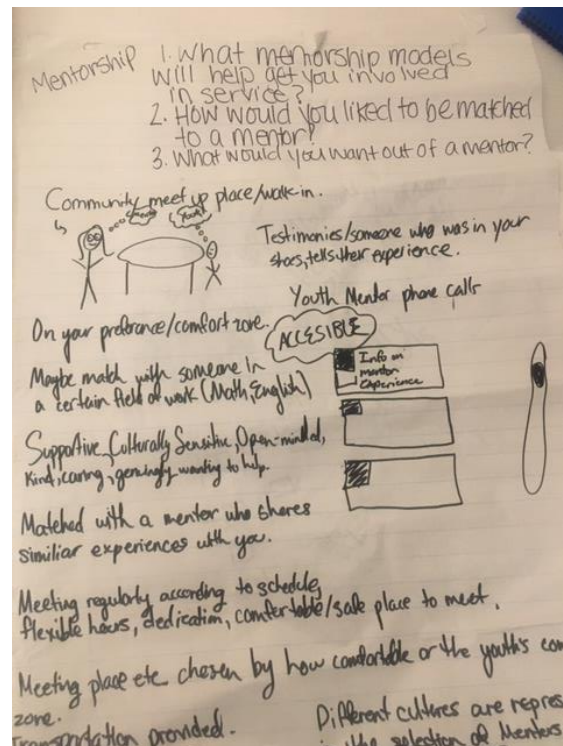 Mentorship
1. What mentorship models
will help get you involved
in service?
2. How would you liked to be matched
to a mentor?
3. What would you want out of a mentor?
Community meet up place/walk-in.
Testimonies/someone who was in your
shoes, tells their experience.
Youth Mentor phone calls
On your preference/comfort zone.
ACCESIBLE
Info on
mentor
experience
Maybe match with someone in
a certain field of work (Math, English)
Supportive, Culturally Sensitive, Open-minded,
Kind, caring, genuingly wanting to help.
Matched with a mentor who shares
similiar experiences with you.
Meeting regularly according to schedule,
flexible hours, dedication, comfortable/safe place to meet.
Meeting place etc. chosen by how comfortable or the youth's com
zone.
Transpondation provided.
Different cultures are repres
the selection of Mentors